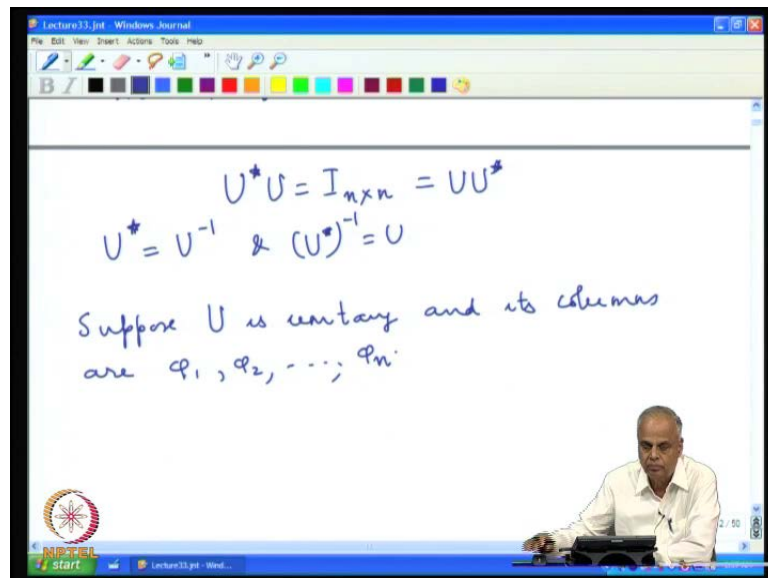 Lecture33.jnt - Windows Journal
File Edit View Insert Actions Tools Help
B I
U*U = I_{n×n} = UU*
U* = U^{-1} & (U*)^{-1} = U
Suppose U is unitary and its columns
are φ₁, φ₂, ..., φₙ.
2 / 50
NPTEL
start
Lecture33.jnt - Wind...